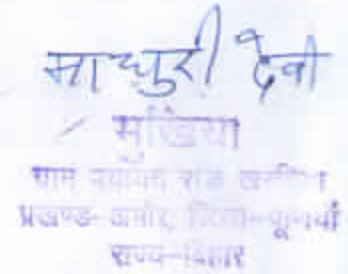 माधुरी देवी
मुखिया
ग्राम पंचायत राज
प्रखण्ड-अमौर, जिला-पूर्णियाँ
राज्य-बिहार